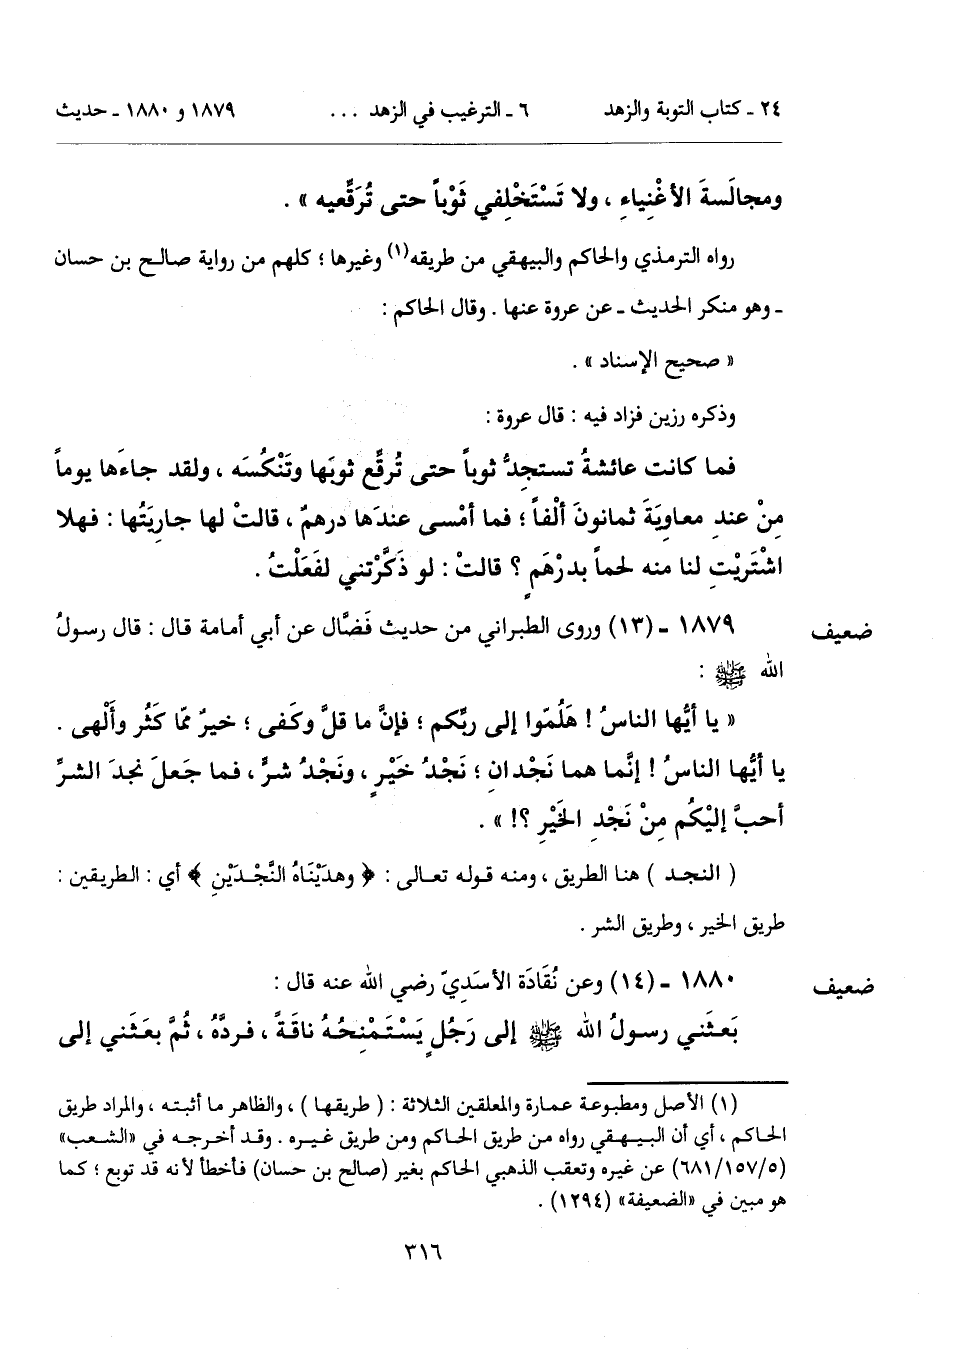 ٢٤ ـ كتاب التوبة والزهد ٦ ـ الترغيب في الزهد ... ١٨٧٩ و ١٨٨٠ ـ حديث
ومجالَسةَ الأغْنِياءِ ، ولا تَسْتَخْلِفي ثَوْباً حتى تُرَقِّعيه » .
رواه الترمذي والحاكم والبيهقي من طريقه(١) وغيرها ؛ كلهم من رواية صالح بن حسان
ـ وهو منكر الحديث ـ عن عروة عنها . وقال الحاكم :
« صحيح الإسناد » .
وذكره رزين فزاد فيه : قال عروة :
فما كانت عائشةُ تستجدُّ ثوباً حتى تُرقِّع ثوبَها وتَنْكُسَه ، ولقد جاءَها يوماً
مِنْ عندِ معاوِيَةَ ثمانونَ ألْفاً ؛ فما أمْسى عندَها درهمٌ ، قالتْ لها جارِيَتُها : فهلا
اشْتَريْتِ لنا منه لحماً بدرْهَمٍ ؟ قالتْ : لو ذَكَّرْتِني لفَعَلْتُ .
ضعيف ١٨٧٩ ـ (١٣) وروى الطبراني من حديث فَضَّال عن أبي أمامة قال : قال رسولُ
الله ﷺ :
« يا أيُّها الناسُ ! هَلُمّوا إلى ربِّكم ؛ فإنَّ ما قلَّ وكَفى ؛ خيرٌ ممّا كَثُر وأَلْهى .
يا أيُّها الناسُ ! إنَّما هما نَجْدانِ ؛ نَجْدُ خَيْرٍ ، ونَجْدُ شرٍّ ، فما جَعلَ نجدَ الشرِّ
أحبَّ إليْكُم مِنْ نَجْدِ الخَيْرِ ؟! » .
( النجد ) هنا الطريق ، ومنه قوله تعالى : ﴿ وهدَيْناهُ النَّجْدَيْنِ ﴾ أي : الطريقين :
طريق الخير ، وطريق الشر .
ضعيف ١٨٨٠ ـ (١٤) وعن نُقَادَة الأسَدِيّ رضي الله عنه قال :
بَعثَني رسولُ الله ﷺ إلى رَجُلٍ يَسْتَمْنِحُهُ ناقَةً ، فردَّهُ ، ثُمَّ بعَثَني إلى
(١) الأصل ومطبوعة عمارة والمعلقين الثلاثة : ( طريقها ) ، والظاهر ما أثبته ، والمراد طريق
الحاكم ، أي أن البيهقي رواه من طريق الحاكم ومن طريق غيره . وقد أخرجه في «الشعب»
(٥/١٥٧/٦٨١) عن غيره وتعقب الذهبي الحاكم بغير (صالح بن حسان) فأخطأ لأنه قد توبع ؛ كما
هو مبين في «الضعيفة» (١٢٩٤) .
٣١٦